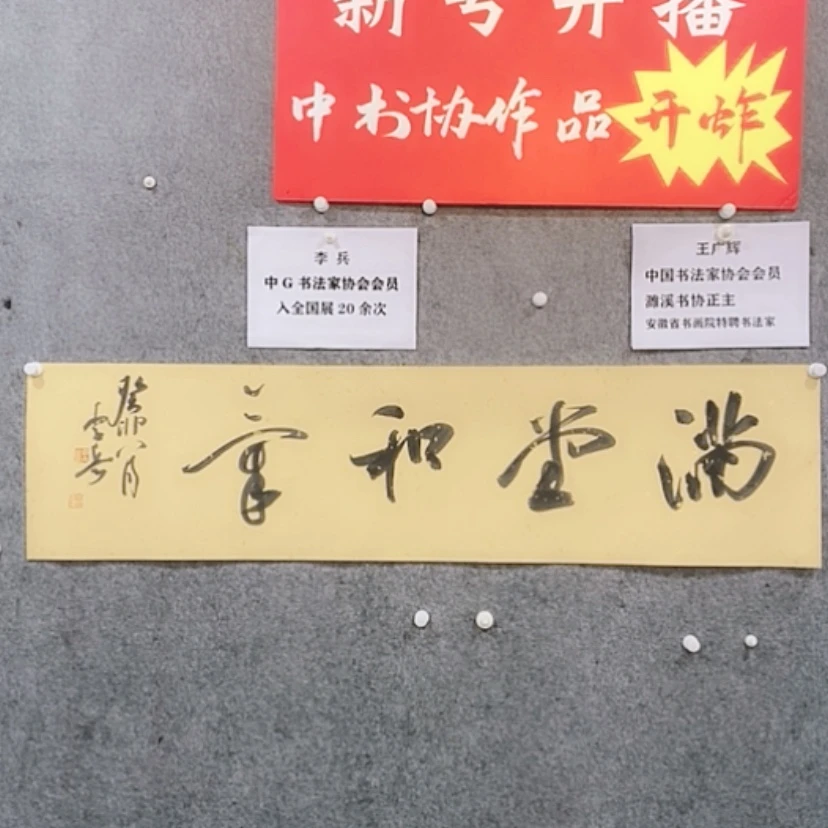 新号开播
中书协作品 开炸
李兵
中G书法家协会会员
入全国展20余次
王广辉
中国书法家协会会员
濉溪书协正主
安徽省书画院特聘书法家
满堂和气
癸卯八月
李兵